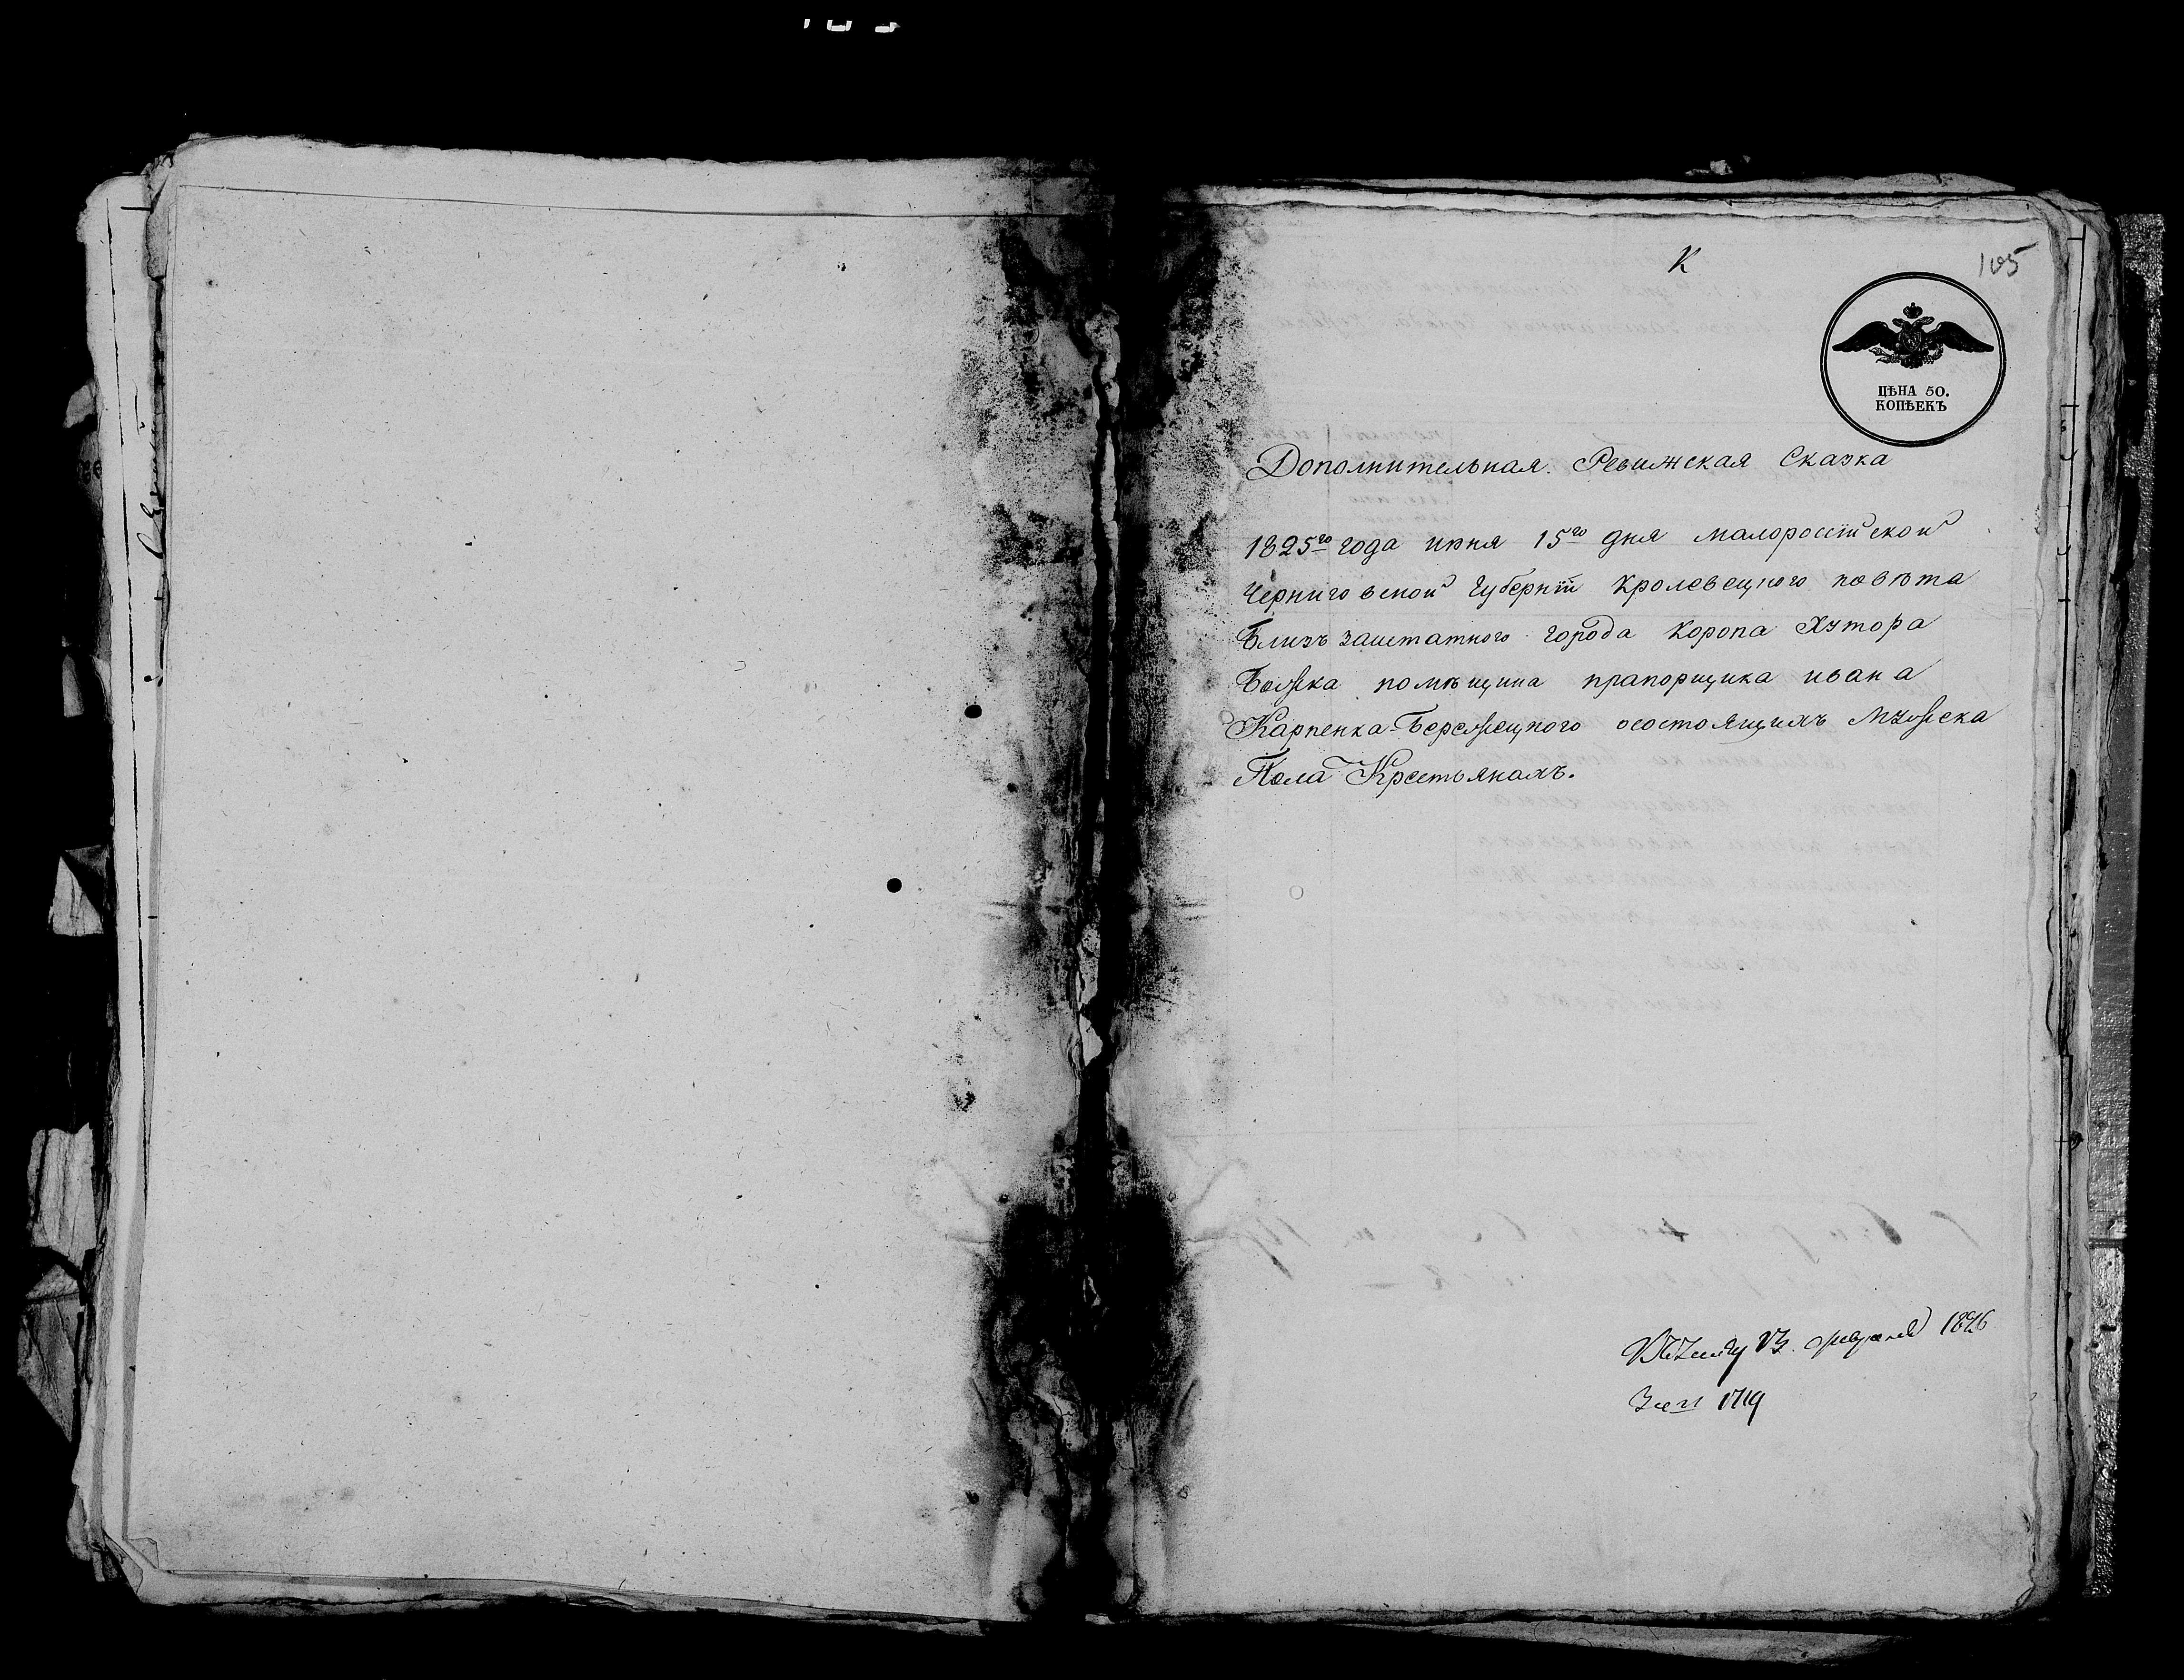 К
105
ЦѢНА 50.
КОПѢЕКЪ
Дополнительная Ревижская Сказка
1825го года июня 15го дня малороссїйской
Черниговской Губернїй Кролевецкого повѣта
Близъ заштатного города Коропа Хутора
Божка помѣщика прапорщика ивана
Карпенка-Бережецкого осостоящихъ Мужеска
Пола Крестьянахъ.
февраля 1826
1719